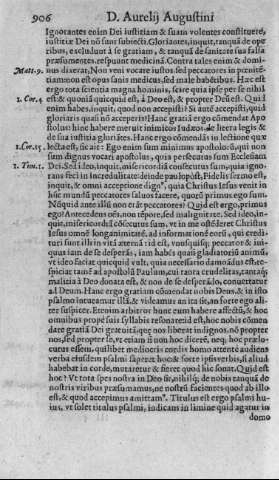 906 D. Aurelij Augustini
Ignorantes enim Dei iustitiam & suam volentes constituere,
iustitiæ Dei nõ sunt subiecti. Gloriantes, inquit, tanquã de ope
ribus, excludunt à se gratiam, & tanquã de sanitate sua falsa
præsumentes, respuunt medicinã. Contra tales enim & domi-
Matt.9. nus dixerat, Non veni vocare iustos, sed peccatores in pœnitẽ
tiam: non est opus sanis medicus, sed male habẽtibus. Hæc est
ergo tota scientia magna hominis, scire quia ipse per se nihil
1.Cor.4 est: & quoniã quicquid est, à Deo est, & propter Deũ est. Quid
enim habes, inquit, quod non accepisti? Si autẽ accepisti, quid
gloriaris quasi nõ acceperis? Hanc gratiã ergo cõmendat Apo
stolus: hinc habere meruit inimicos Iudæos, de litera legis &
de sua iustitia gloriãtes. Hanc ergo cõmẽdãs in lectione quæ
1.Cor.15 lecta est, sic ait: Ego enim sum minimus apostolorũ, qui non
sum dignus vocari apostolus, quia persecutus sum Ecclesiam
1.Tim.1. Dei. Sed ideo, inquit, misericordiã consecutus sum, quia igno-
rans feci in incredulitate: deinde paulopòst, Fidelis sermo est,
inquit, & omni acceptione dignus, quia Christus Iesus venit in
hũc mundũ peccatores saluos facere, quorũ primus ego sum.
Nũquid ante illũ non erãt peccatores? Quid est ergo, primus
ego? Antecedens oẽs, non tẽpore, sed malignitate. Sed ideo, in-
quit, misericordiã cõsecutus sum, vt in me ostẽderet Christus
Iesus oẽm longanimitatẽ, ad informationẽ eorũ, qui credi-
turi sunt illi in vitã æternã: id est, vt
vt ideo faciat quicquid vult, quia necessario damnãdus est, re-
spiciat tamẽ ad apostolũ Paulum, cui tanta crudelitas, tantaque
malitia à Deo donata est, & non de se desperãdo, conuertatur
ad Deum. Hanc ergo gratiam cõmendat nobis Deus, & in isto
psalmo intueamur illã, & videamus an ita sit, an forte ego ali-
ter suspicer. Etenim arbitror hunc eum habere affectũ, & hoc
omnibus propè suis syllabis resonare: id est, hoc nobis cõmen
dare gratiã Dei gratuitã, quæ nos liberat indignos, nõ propter
nos, sed propter se, vt etiam si non hoc dicerẽ, neque hoc prælo-
cutus essem, quilibet mediocris cordis homo attentè audiens
verba eiusdem psalmi saperet hoc: & fortè ipsis verbis, si aliud
habebat in corde, mutaretur & fieret quod hic sonat. Quid est
hoc? Vt tota spes nostra in Deo sit, nihilque de nobis tanquã de
nostris viribus præsumamus, ne nostrũ facientes quod ab illo
est, & quod accepimus amittamus. Titulus est ergo psalmi hu-
ius, vt solet titulus psalmi, indicans in limine quid agatur in
domo